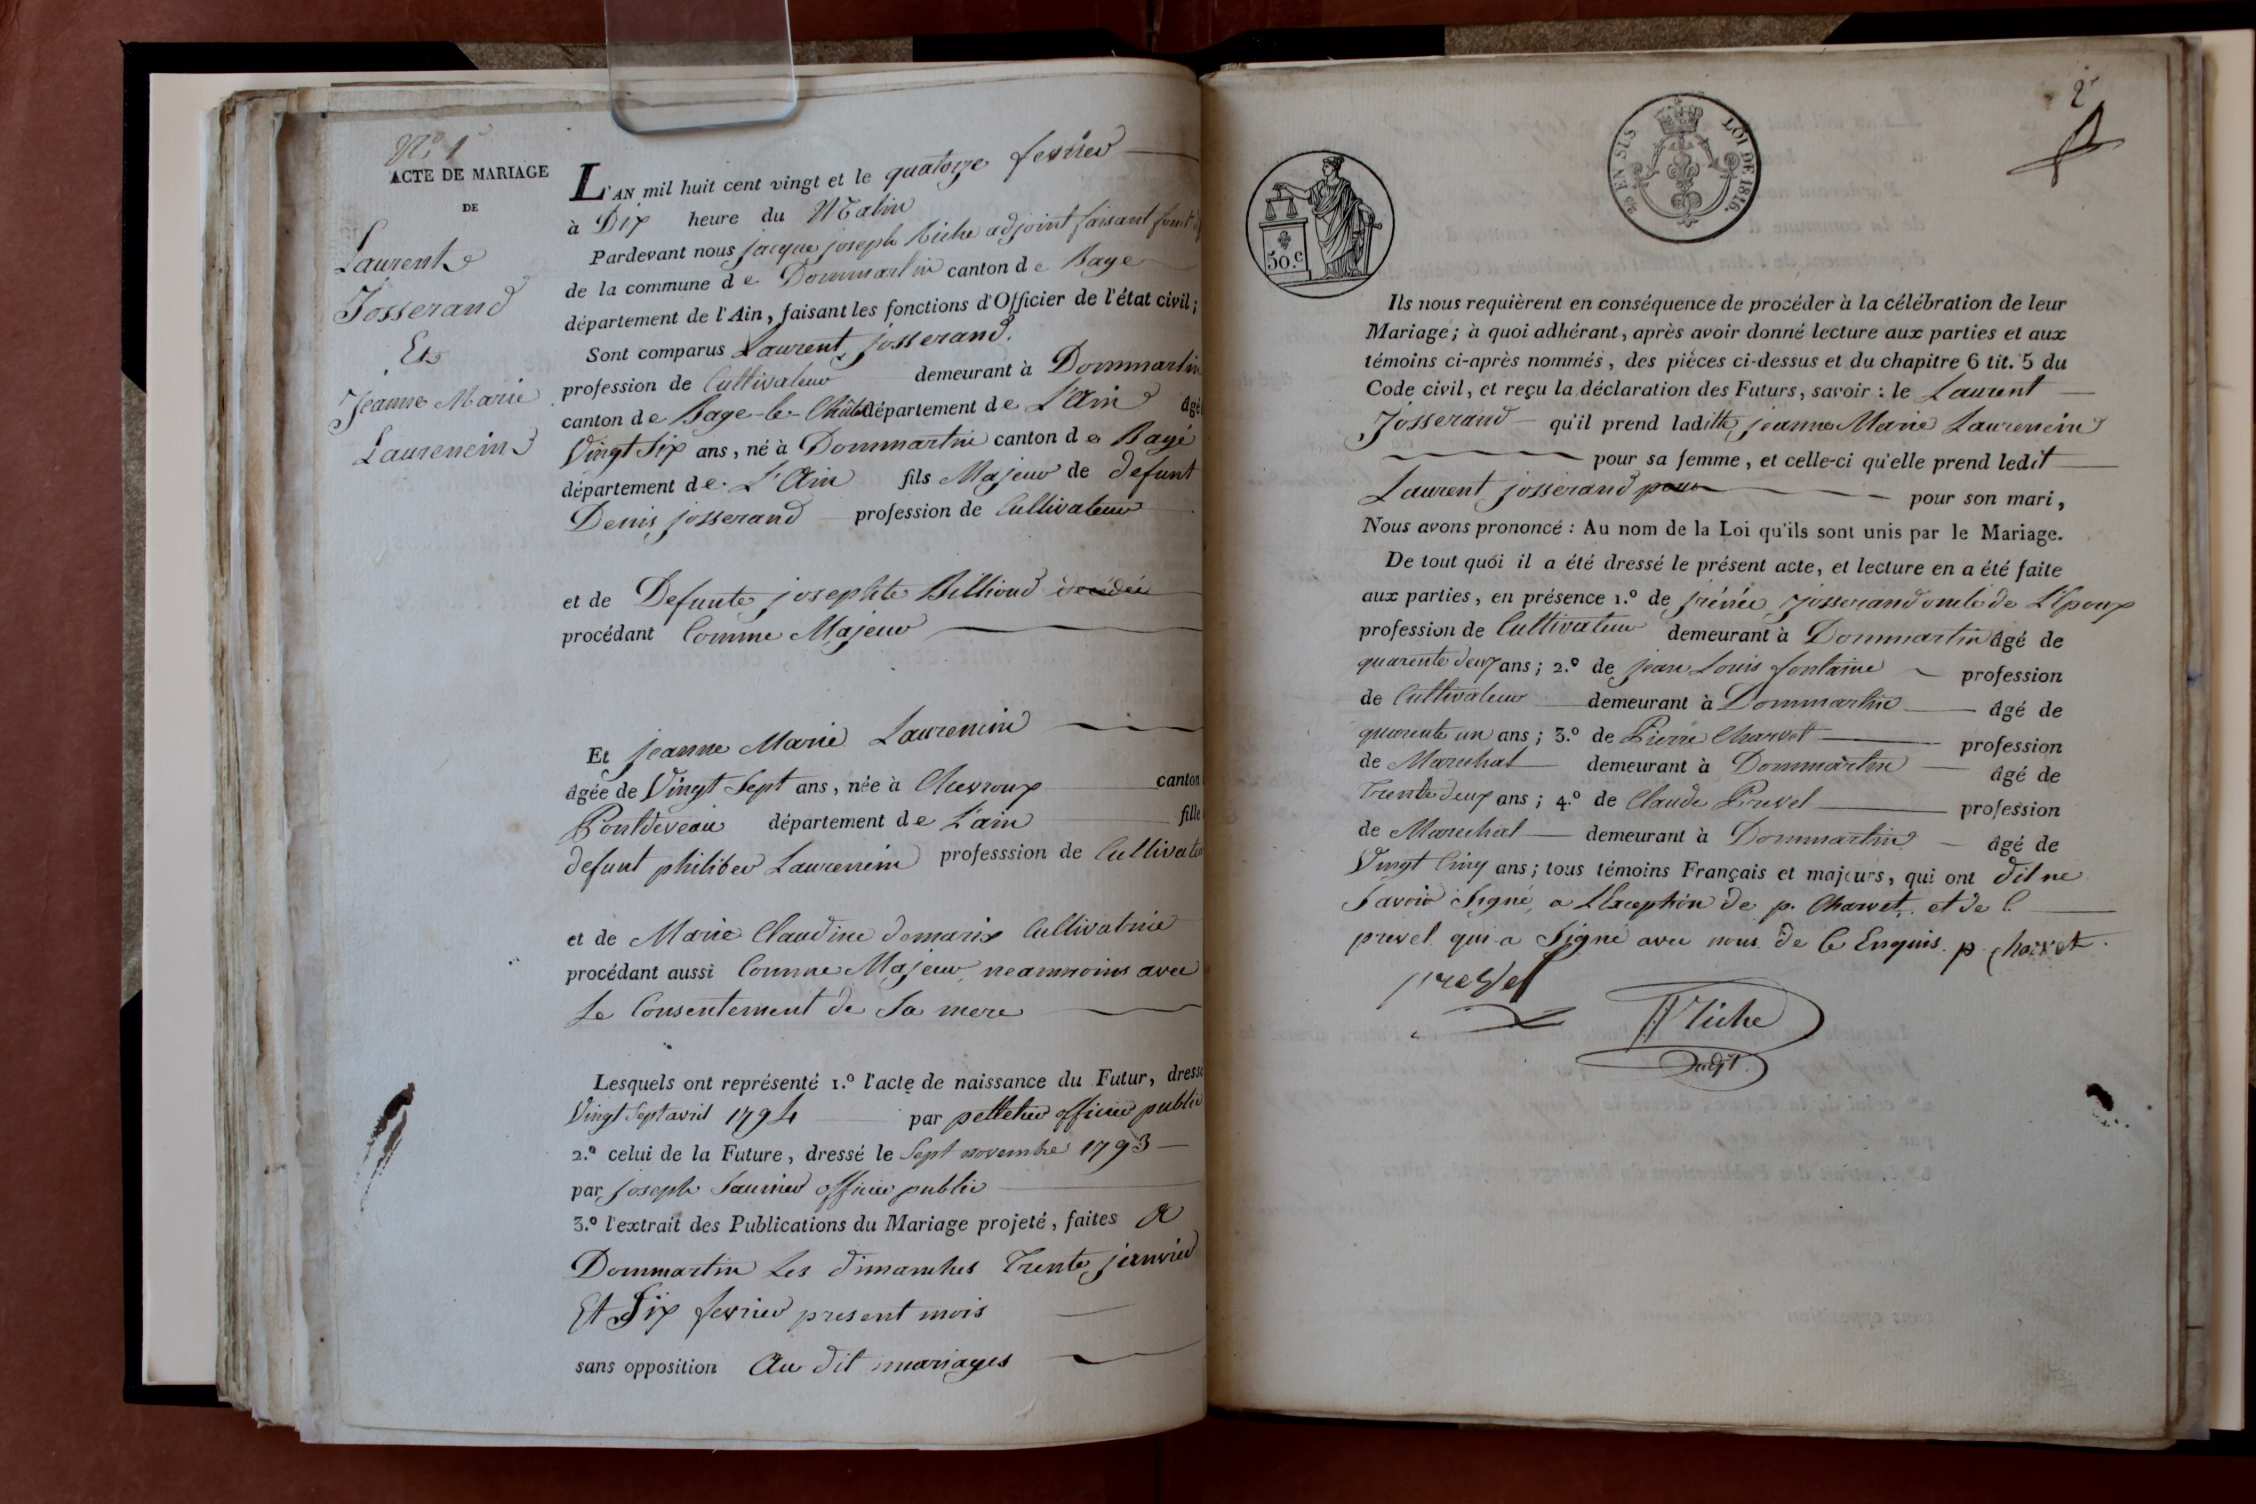 N.º 1
ACTE DE MARIAGE
DE
Laurent
Josserand
Et
Jeanne Marie
Laurencin
L'AN mil huit cent vingt et le quatorze fevrier
à Dix heure du Matin
Pardevant nous jacque joseph Riche adjoint faisant
de la commune de Dommartin canton de Bage
département de l'Ain, faisant les fonctions d'Officier de l'état civil;
Sont comparus Laurent josserand.
profession de Cultivateur demeurant à Dommartin
canton de Bage-le-Châtel département de L'Ain âgé
Vingt Six ans, né à Dommartin canton de Bagé
département de L'Ain fils Majeur de defunt
Denis josserand profession de Cultivateur
et de Defunte josephte Billioud décédée
procédant Comme Majeur
Et jeanne Marie Laurencin
âgée de Vingt Sept ans, née à Chevroux canton
Pontdeveau département de L'ain fille
defunt philiber Laurencin professsion de Cultivateur
et de Marie Claudine demarix Cultivatrice
procédant aussi Comme Majeur neammoins avec
Le Consentement de Sa mere
Lesquels ont représenté 1.º l'acte de naissance du Futur, dressé
Vingt Sept avril 1794 par pelletier officier public
2.º celui de la Future, dressé le Sept novembre 1793
par joseph Saunier officier public
3.º l'extrait des Publications du Mariage projeté, faites A
Dommartin Les dimanches Trente janvier
Et Six fevrier present mois
sans opposition Au dit mariages
2
25 EN SUS LOI DE 1816.
50.c
Ils nous requièrent en conséquence de procéder à la célébration de leur
Mariage; à quoi adhérant, après avoir donné lecture aux parties et aux
témoins ci-après nommés, des pièces ci-dessus et du chapitre 6 tit. 5 du
Code civil, et reçu la déclaration des Futurs, savoir : le Laurent
Josserand qu'il prend laditte jeanne Marie Laurencin
pour sa femme, et celle-ci qu'elle prend ledit
Laurent josserand pour pour son mari,
Nous avons prononcé : Au nom de la Loi qu'ils sont unis par le Mariage.
De tout quoi il a été dressé le présent acte, et lecture en a été faite
aux parties, en présence 1.º de josserand oncle de L'Epoux
profession de Cultivateur demeurant à Dommartin âgé de
quarente deux ans; 2.º de jean Louis fontaine profession
de Cultivateur demeurant à Dommartin âgé de
quarente un ans; 3.º de Pierre Charvet profession
de Marechal demeurant à Dommartin âgé de
Trente deux ans; 4.º de Claude Prevel profession
de Marechal demeurant à Dommartin âgé de
Vingt Cinq ans; tous témoins Français et majeurs, qui ont dit ne
Savoir Signé, a L'Exception de p. Charvet, et de C.
prevel qui a Signé avec nous de Ce Enquis. p charvet
prevel
Riche
adjt